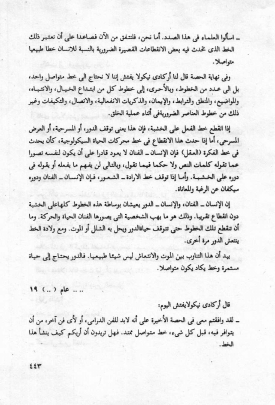 ـ اسألوا العلماء في هذا الصدد. أما نحن، فلنتفق من الآن فصاعدا على أن نعتبر ذلك
الخط الذي تحدث فيه بعض الانقطاعات القصيرة الضرورية بالنسبة للإنسان خطا طبيعيا
متواصلا.
وفي نهاية الحصة قال لنا أركادي نيكولايفتش إننا لا نحتاج الى خط متواصل واحد،
بل الى عدد من الخطوط، وبالأحرى، إلى خطوط كل من ابتداع الخيال، والانتباه،
والمواضيع، والمنطق والترابط، والإيمان، والذكريات الانفعالية، والاتصال، والتكيفات وغير
ذلك من خطوط العناصر الضرورية في أثناء عملية الخلق.
إذا انقطع خط الفعل على الخشبة، فإن هذا يعني توقف الدور، أو المسرحية، أو العرض
المسرحي، أما إذا حدث هذا الانقطاع في خط محركات الحياة السيكولوجية، كأن يحدث
في خط الفكرة (العقل) فإن الإنسان ـ الفنان لا يعود قادرا على أن يكون لنفسه تصورا
عما تقوله كلمات النص ولا حكما فيما تقول، وبالتالي لن يفهم ما يفعله أو يقوله في
دوره على الخشبة. وأما إذا توقف خط الإرادة ـ الشعور، فإن الإنسان ـ الفنان ودوره
سيكفان عن الرغبة والمعاناة.
إن الإنسان ـ الفنان، والإنسان ـ الدور يعيشان بوساطة هذه الخطوط كلها على الخشبة
دون انقطاع تقريبا. وذلك هو ما يهب الشخصية التي يصورها الفنان الحياة والحركة. وما
أن تنقطع تلك الخطوط حتى تتوقف حياة الدور ويحل به الشلل أو الموت. ومع ولادة الخط
ينتعش الدور مرة أخرى.
بيد أن هذا التناوب بين الموت والانتعاش ليس شيئا طبيعيا. فالدور يحتاج إلى حياة
مستمرة وخط يكاد يكون متواصلا.
.... عام (..) ١٩
قال أركادي نيكولايفتش اليوم:
ـ لقد وافقتم معي في الحصة الأخيرة على أنه لابد للفن الدرامي، أو لأي فن آخر، من أن
يتوافر فيه، قبل كل شيء، خط متواصل ممتد. فهل تريدون أن أريكم كيف ينشأ هذا
الخط.
٤٤٣